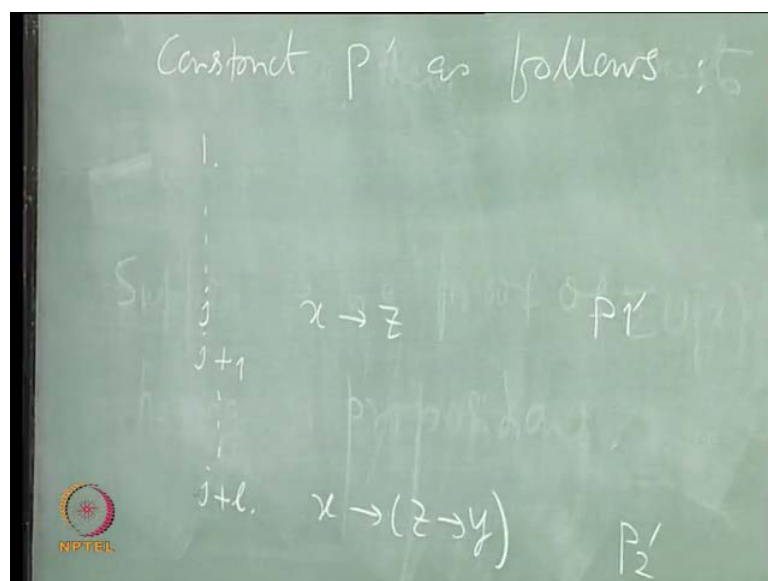 Construct P' as follows :
1.
j x → z P1'
j+1
j+l. x → (z → y) P2'
NPTEL